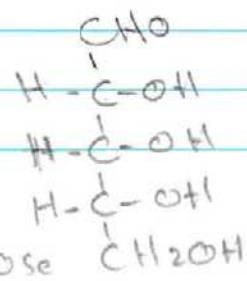 CHO
H-C-OH
H-C-OH
H-C-OH
ose CH2OH